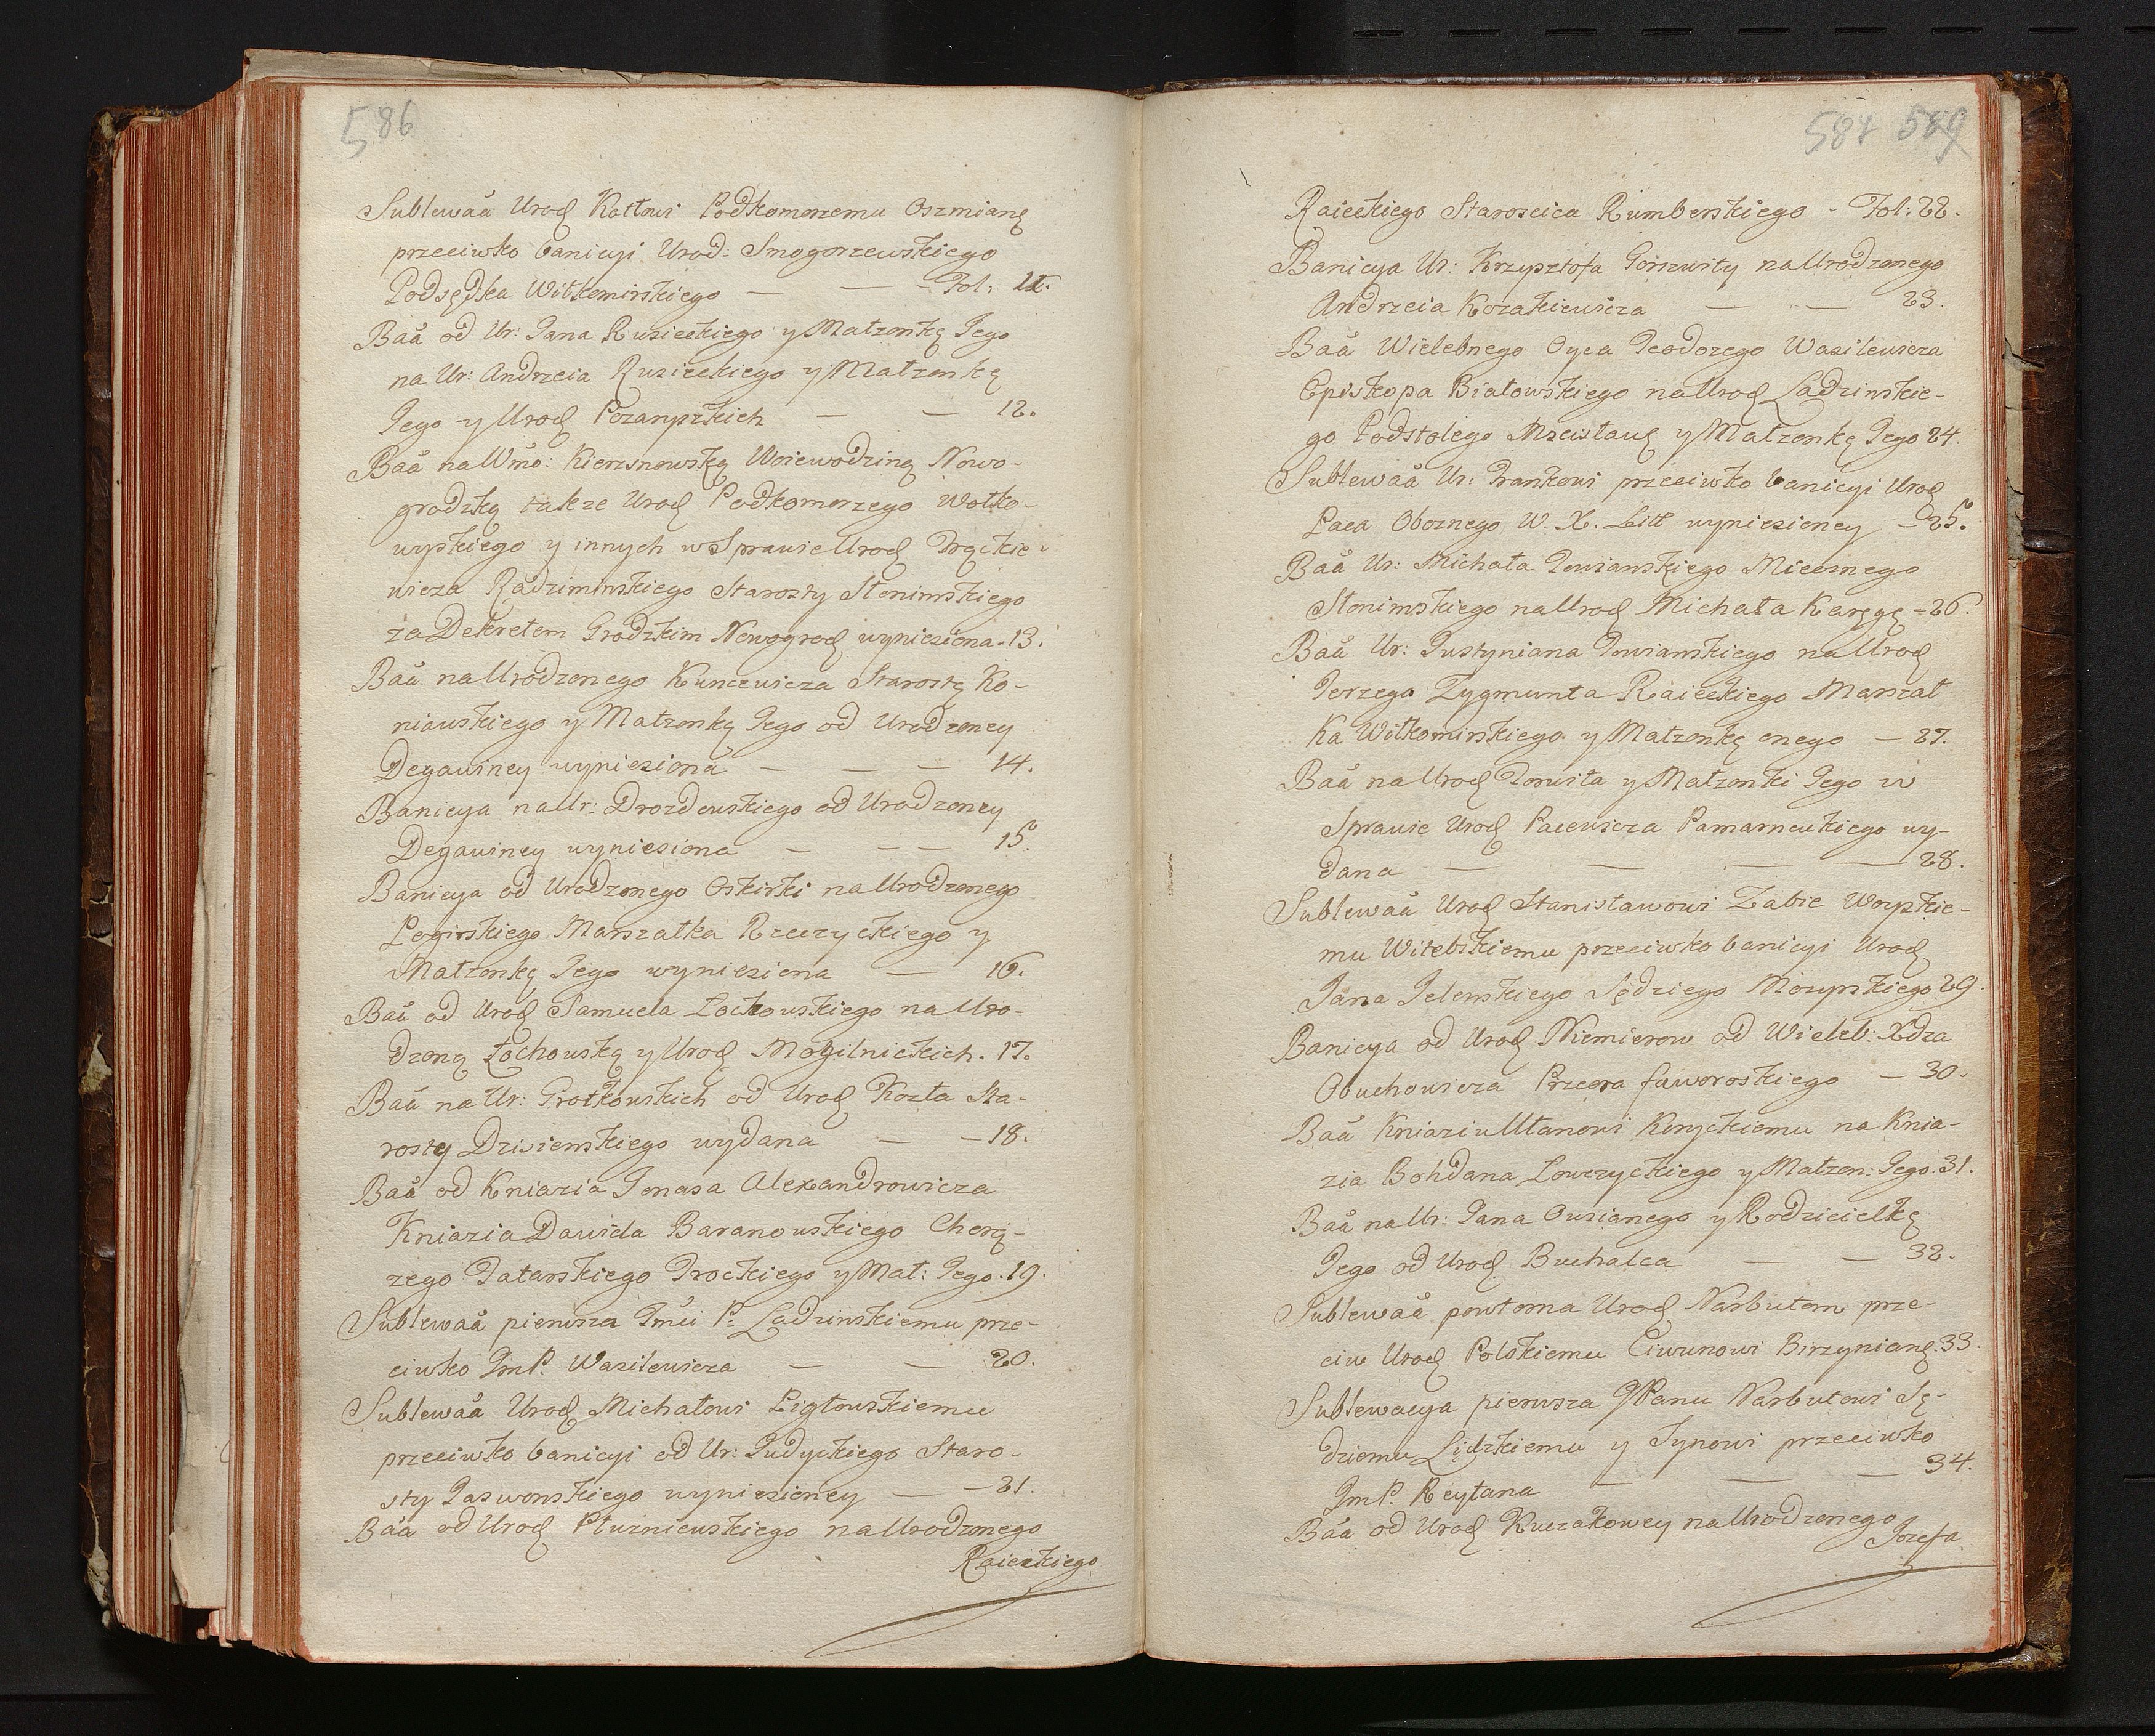 586
Sublewaã Urod Kotłowi Podkomorzemu Oszmianą
przeciwko banicyi Urod: Smogorzewskiego
Podsędka Wiłkomirskiego — — Fol. 11.
Baã od Ur: Jana Rusieckiego y Małzonkę Jego
na Ur: Andrzeia Rusieckiego y Małzonkę
Jego y Urod Pozarpskich — — 12.
Baã na Wmo: Kierznowską Woiewodzinę Nowo-
grodzką także Urod Podkomorzego Wołko-
wyskiego y innych w Sprawie Urod Frąckie-
wicza Radziminskiego Starosty Słonimskiego
za Dekretem Grodzkim Nowogrod wyniesiona. 13.
Baã na Urodzonego Kuncewicza Starostę Ko-
niawskiego y Małzonkę Jego od Urodzoney
Degawiney wyniesiona — — — 14.
Banicya na Ur: Drozdowskiego od Urodzoney
Degawiney wyniesiona — — — 15.
Banicya od Urodzonego Oskirki na Urodzonego
Pogirskiego Marszałka Rzeczyckiego y
Małzonkę Jego wyniesiona — 16.
Baã od Urod Samuela Łochowskiego na Uro-
dzoną Łochowską y Urod Mogilnickich. 17.
Baã na Ur: Grotkowskich od Urod Kozła Sta-
rosty Dzisienskiego wydana — — 18.
Baã od Kniazia Jonasa Alexandrowicza
Kniazia Dawida Baranowskiego Chorą-
żego Tatarskiego Trockiego y Mał: Jego. 19.
Sublewaã pierwsza Jmci P. Ladzinskiemu prze-
ciwko JmP. Wasilewicza — — 20.
Sublewaã Urod Michałowi Pigłowskiemu
przeciwko banicyi od Ur: Judyckiego Staro-
sty Jaswonskiego wyniesioney — — 21.
Baã od Urod Płuzniewskiego na Urodzonego
Raieckiego
587 589
Raieckiego Staroscica Rumborskiego - Fol: 22.
Banicya Ur: Krzysztofa Gorszwity na Urodzonego
Andrzeia Kozakiewicza — — 23.
Baã Wielebnego Oyca Teodozego Wasilewicza
Episkopa Białowskiego na Urod Ladzinskie-
go Podstolego Mscisław y Małzonkę Jego 24.
Sublewaã Ur: Frankowi przeciwko banicyi Urod
Paca Oboznego W. X. Litt wyniesioney — 25.
Baã Ur: Michała Towianskiego Miecznego
Słonimskiego na Urod Michała Karęgę - 26.
Baã Ur: Justyniana Towianskiego na Urod
Jerzego Zygmunta Raieckiego Marszał
ka Wiłkomirskiego y Małzonkę onego — 27.
Baã na Urod Dowiła y Małzonki Jego w
Sprawie Urod Pacewicza Pamarnackiego wy-
dana — — — 28.
Sublewaã Urod Stanisławowi Zabie Woyskie-
mu Witebskiemu przeciwko banicyi Urod
Jana Jelenskiego Sędziego Mozyrskiego 29.
Banicya od Urod Niemierow od Wieleb: Xdza
Obuchowicza Przeora faworoskiego — 30.
Baã Kniaziu Ułanowi Koryckiemu na Knia-
zia Bohdana Łowczyckiego y Małzon: Jego. 31.
Baã na Ur: Jana Owsianego y Rodzicielkę
Jego od Urod Buchalca — — 32.
Sublewaã powtorna Urod Narbutom prze-
ciw Urod Polskiemu Ciwunowi Birzynianą. 33.
Sublewacya pierwsza JPanu Narbutowi Sę-
dziemu Lidzkiemu y Synowi przeciwko
JmP. Reytana — — — 34.
Baã od Urod Kuczakowey na Urodzonego
Jozefa